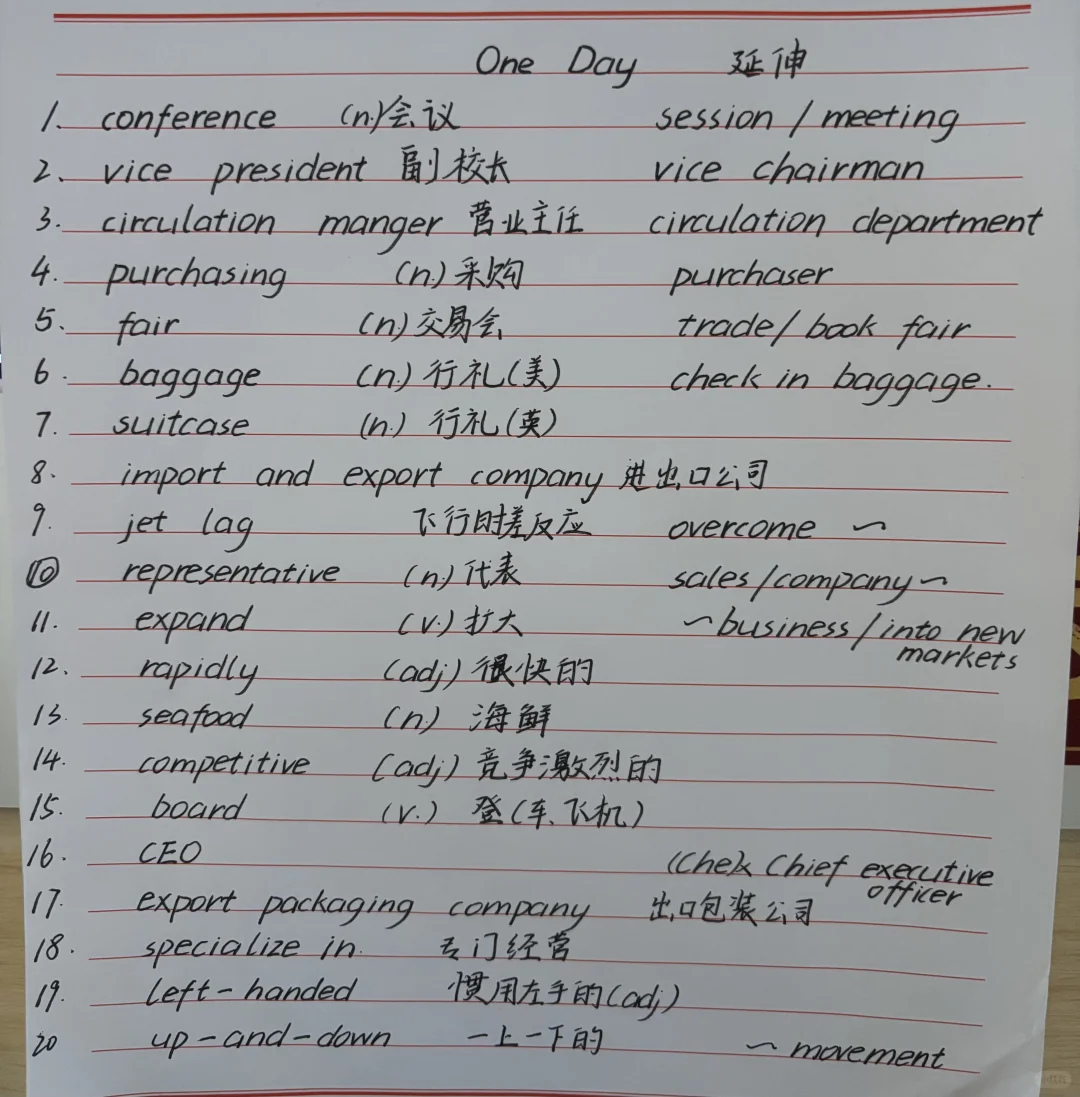 One Day 延伸
1. conference (n.)会议 session / meeting
2、vice president 副校长 vice chairman
3. circulation manger 营业主任 circulation department
4. purchasing (n.)采购 purchaser
5、fair (n)交易会 trade/ book fair
6. baggage (n.)行礼(美) check in baggage.
7. suitcase (n.) 行礼(英)
8. import and export company 进出口公司
9. jet lag 飞行时差反应 overcome ~
10 representative (n.)代表 sales/company~
11. expand (v.)扩大 ~business / into new
markets
12. rapidly (adj)很快的
13. seafood (n.) 海鲜
14. competitive (adj)竞争激烈的
15. board (v.) 登(车、飞机)
16. CEO Chief executive
officer
17. export packaging company 出口包装公司
18. specialize in. 专门经营
19. left-handed 惯用左手的(adj)
20 up-and-down 一上一下的 ~ movement